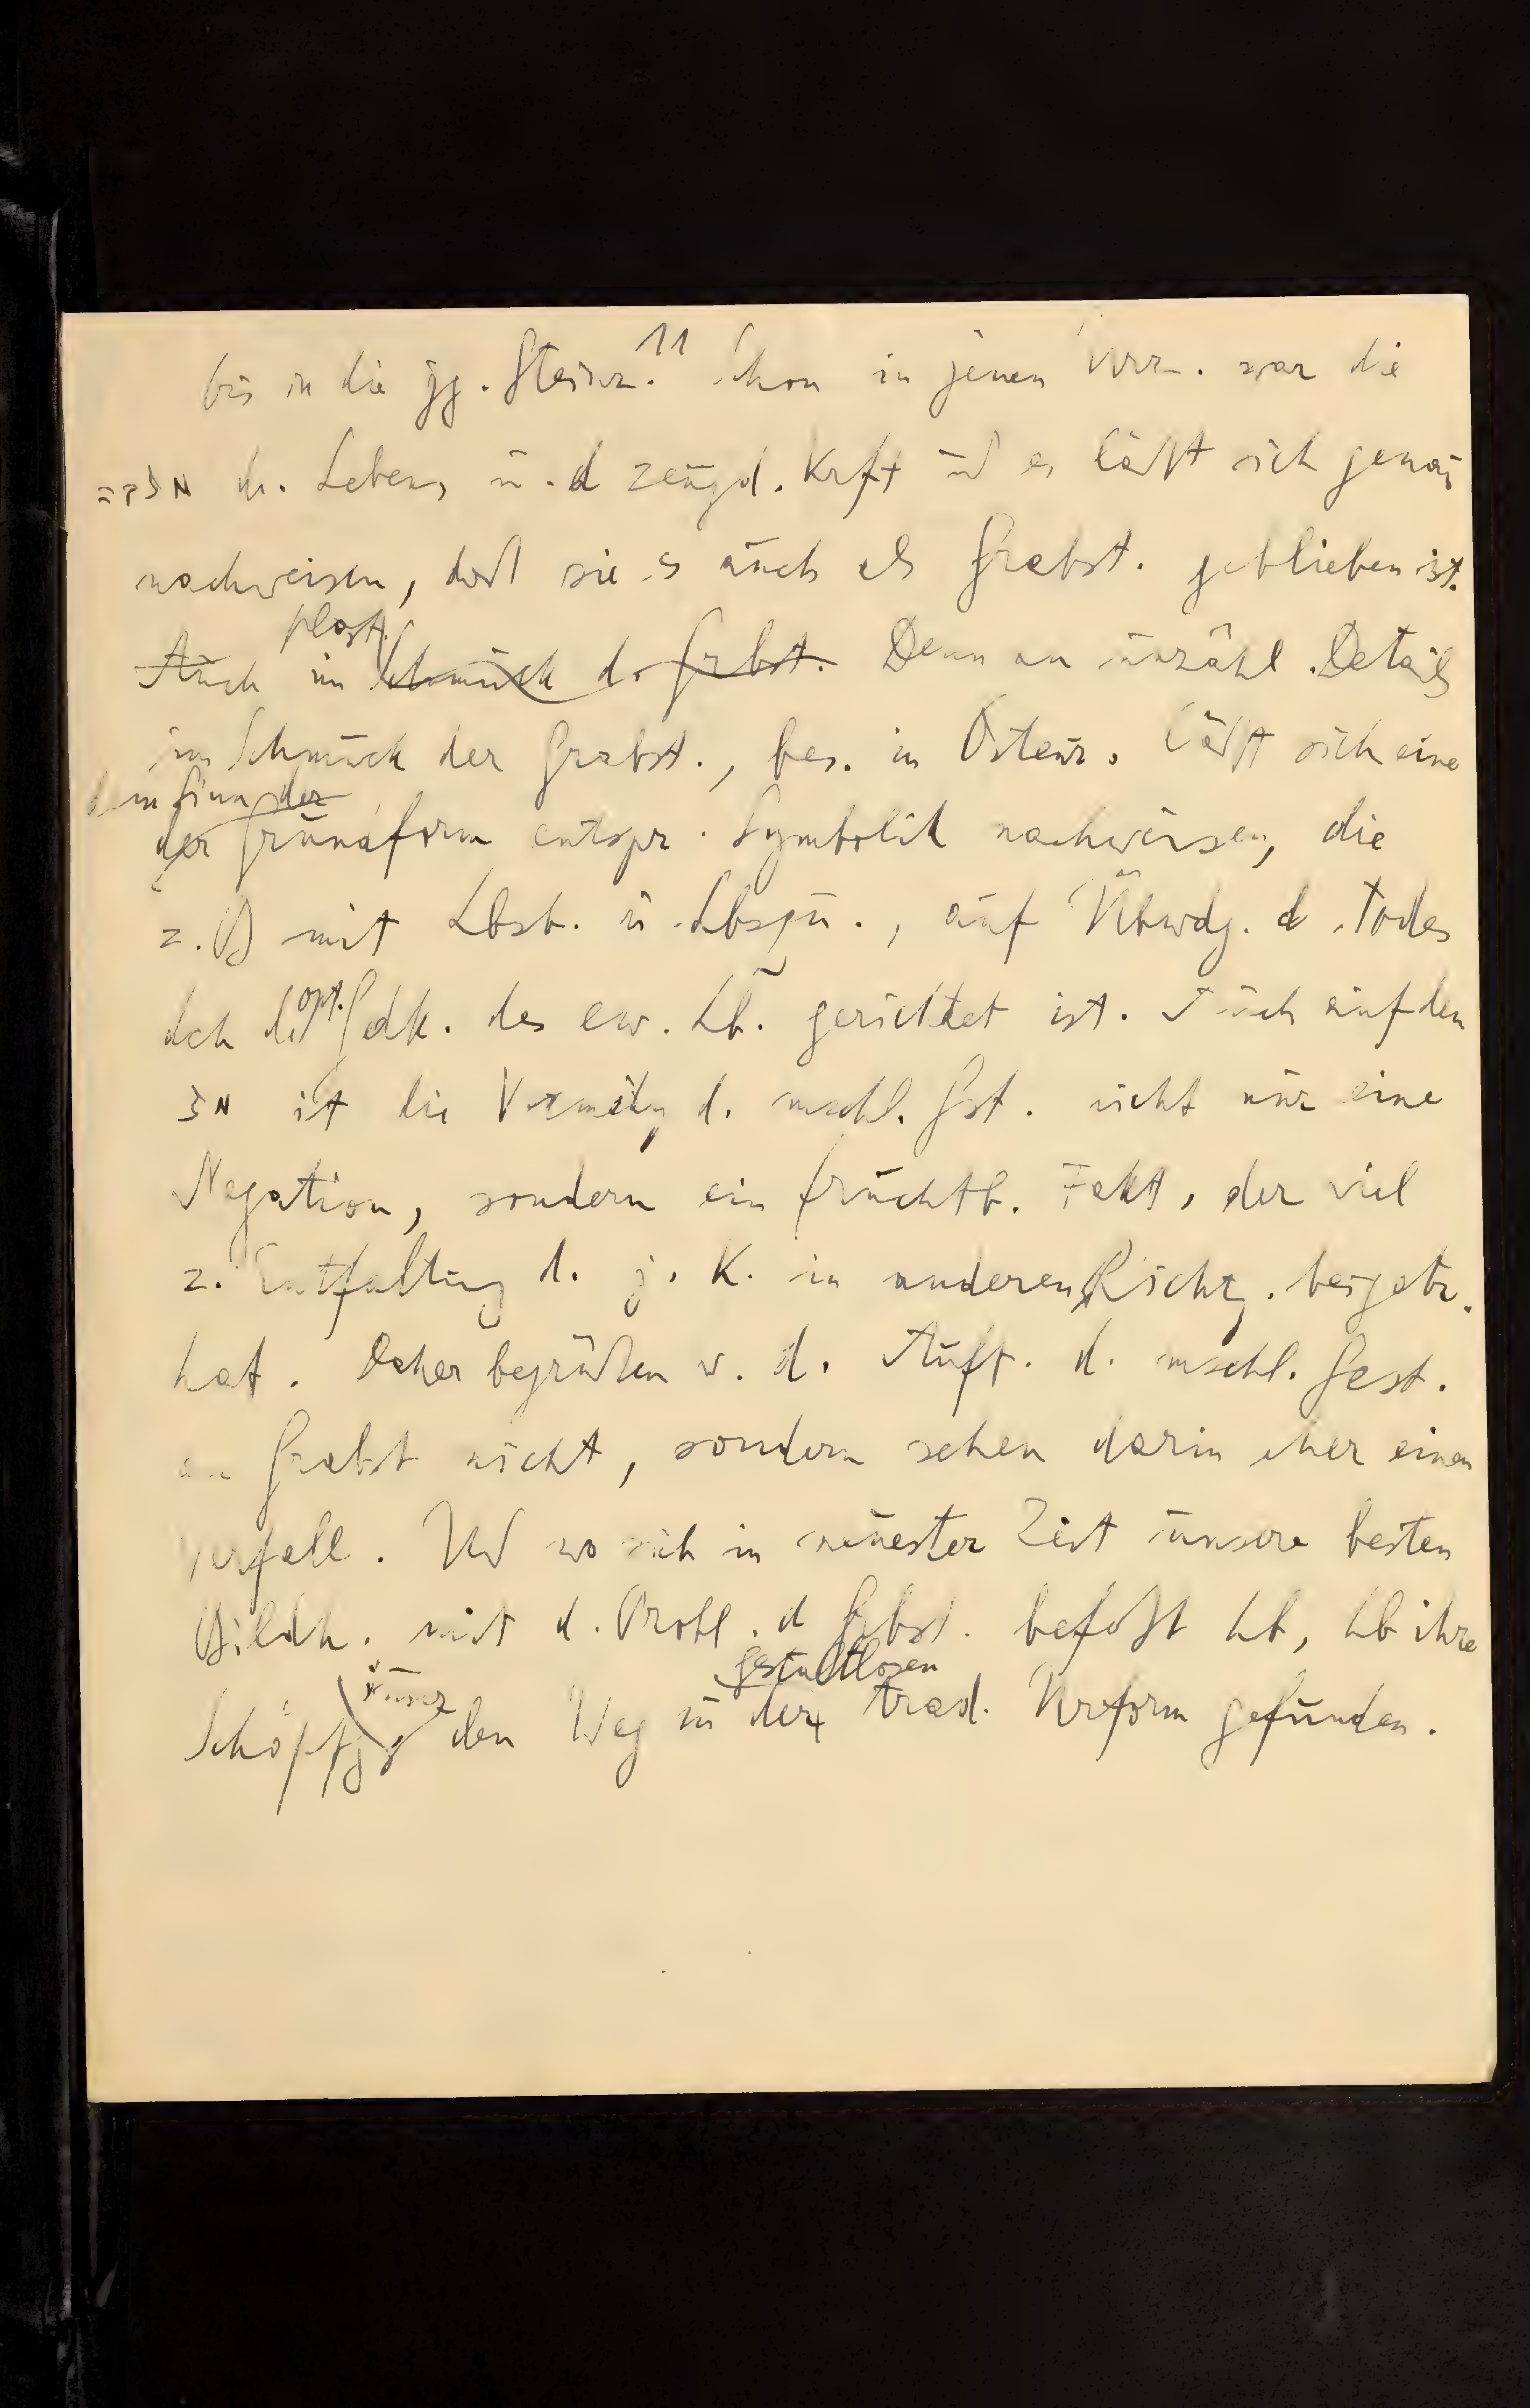 11
bis in die jg. Steinz. Schon in jenen Urz. war die
d. Lebens u. d zeugd. Krft und es läßt sich genau
nachweisen, daß sie es auch als Grabst. geblieben ist.
plast.
Auch im Schmuck d. Grbst. Denn an unzähl. Details
im Schmuck der Grabst., bes. in Osteur. läßt sich eine
dem Sinn der
der Grundform entspr. Symbolik nachweisen, die
z. B mit Lbsb. u. Lbsqu., auf Übwdg. d. Todes
dch d. opt. Gedk. des ew. Lb. gerichtet ist. Auch auf den
ist die Vermeidg d. mschl. Gst. nicht nur eine
Negation, sondern ein fruchtb. Fakt., der viel
z. Entfaltung d. j. K. in anderen Richtg. beigetr.
hat. Daher begrüßen w. d. Auft. d. mschl. Gest.
an Grabst nicht, sondern sehen darin eher einen
Verfall. Und wo sich in neuester Zeit unsere besten
Bildh. mit d. Probl. d Grbst. befaßt hb, hb ihre
gestaltlosen
Schöpfg den Weg zu der trad. Urform gefunden.